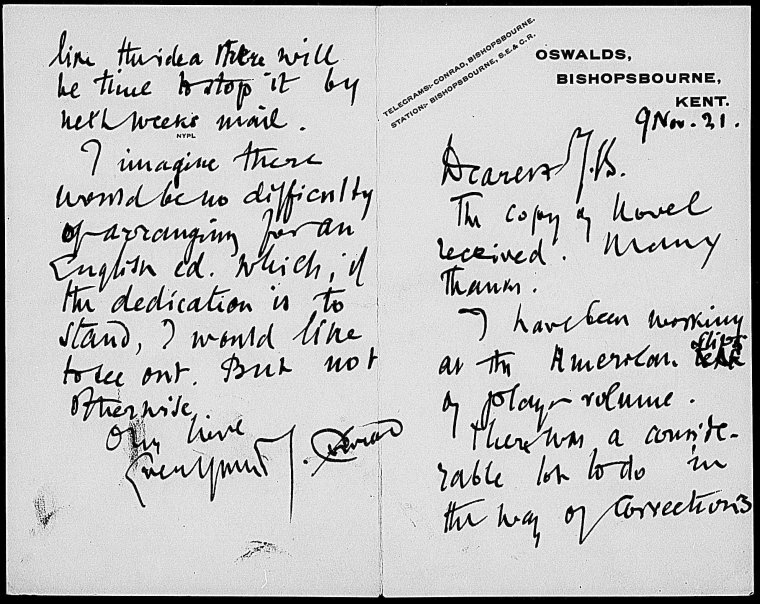 TELEGRAMS:- CONRAD, BISHOPSBOURNE.
STATION:- BISHOPSBOURNE, S.E. & C.R.
OSWALDS,
BISHOPSBOURNE,
KENT.
9 Nov. 21.
Dearest J.B.
The copy of Novel
received. Many
thanks.
I have been working
at the American slips
of plays volume.
There was a conside-
rable lot to do in
the way of corrections
like the idea there will
be time to stop it by
next week's mail.
NYPL
I imagine there
would be no difficulty
of arranging for an
English ed. which, if
the dedication is to
stand, I would like
to see out. But not
otherwise
Our love
Ever Yours J. Conrad